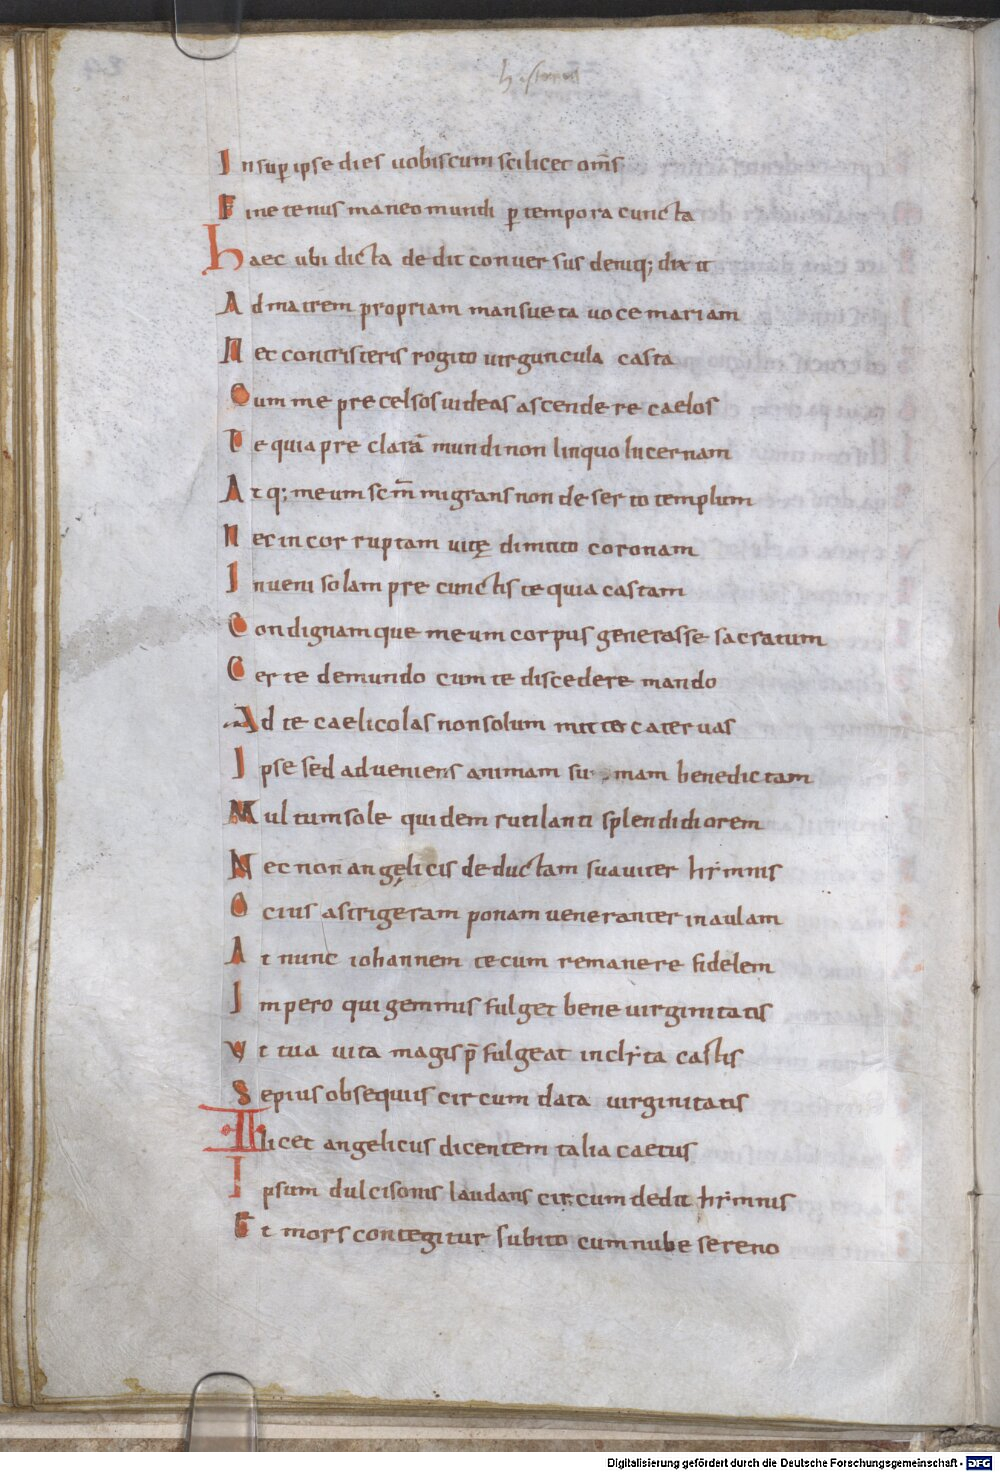 Insup̄ ipse dies uobiscum scilicet om̄s
Fine tenus maneo mundi p̄ tempora cuncta
Haec ubi dicta dedit conuersus deniq; dixit
Ad matrem propriam mansueta uoce mariam
Nec contristeris rogito uirguncula casta
Cum me precelsos uideas ascendere caelos
Te quia preclarā mundi non linquo lucernam
Atq; meum sc̄m migrans non deserto templum
Nec incorruptam uitę dimitto coronam
Inueni solam pre cunctis te quia castam
Condignamque meum corpus generasse sacratum
Certe de mundo cum te discedere mando
Ad te caelicolas non solum mitto cateruas
Ipse sed adueniens animam sumam benedictam
Multum sole quidem rutilanti splendidiorem
Nec non angęlicis deductam suauiter hymnis
Ocius astrigeram ponam ueneranter in aulam
At nunc iohannem tecum remanere fidelem
Impero qui gemmis fulget bene uirginitatis
Vt tua uita magis p̄fulgeat inclyta castis
Sepius obsequiis circumdata uirginitatis
Ilicet angelicus dicentem talia caetus
Ipsum dulcisonis laudans circumdedit hymnis
Et mors contegitur subito cum nube sereno
Digitalisierung gefördert durch die Deutsche Forschungsgemeinschaft - DFG